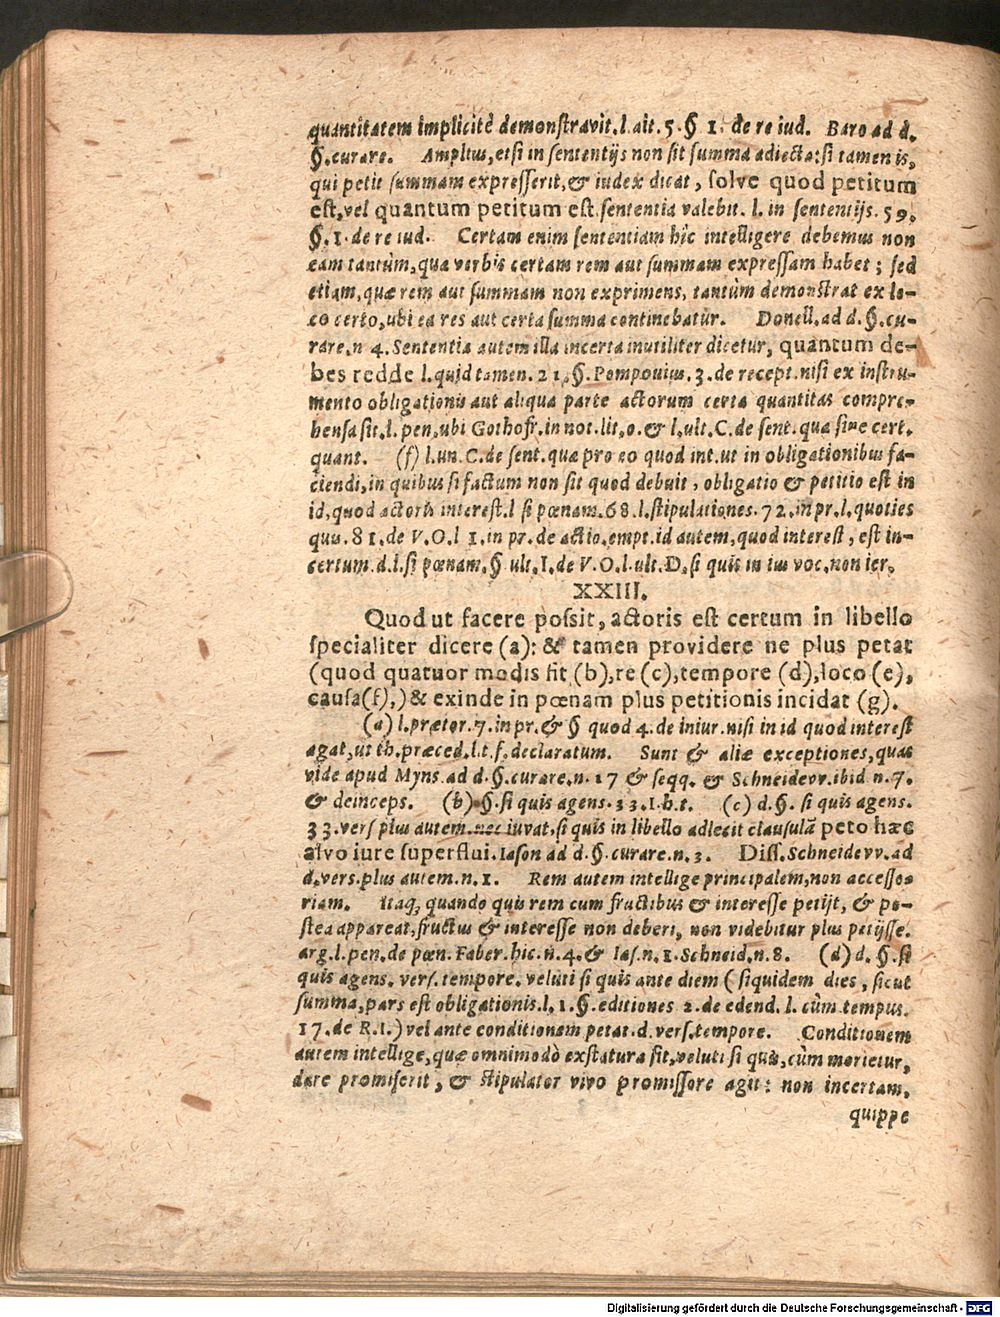 quantitatem implicitè demonstravit.l.ait.5.§ 1. de re iud. Baro ad d.
§.curare. Amplius,etsi in sententijs non sit summa adiecta:si tamen is,
qui petit summam expresserit,& iudex dicat, solve quod petitum
est,vel quantum petitum est.sententia valebit. l. in sententijs. 59.
§.1.de re iud. Certam enim sententiam hîc intelligere debemus non
eam tantùm,qua verbis certam rem aut summam expressam habet; sed
etiam,quæ rem aut summam non exprimens, tantùm demonstrat ex lo-
co certo,ubi ea res aut certa summa continebatur. Donell.ad d.§.cu-
rare.n 4.Sententia autem illa incerta inutiliter dicetur, quantum de-
bes redde l.quid tamen.21.§.Pomponius.3.de recept.nisi ex instru-
mento obligationis aut aliqua parte actorum certa quantitas compre-
hensa sit.l.pen,ubi Gothofr.in not.lit,o.& l.ult.C.de sent.qua sine cert.
quant. (f) l.un.C.de sent.quæ pro eo quod int.ut in obligationibus fa-
ciendi,in quibus si factum non sit quod debuit, obligatio & petitio est in
id,quod actoris interest.l si pœnam.68.l.stipulationes.72.in pr.l.quoties
quis.81.de V.O.l 1.in pr.de actio.empt.id autem,quod interest, est in-
certum.d.l.si pœnam.§ ult.l.de V.O.l.ult.D.si quis in ius voc.non ier.
XXIII.
Quod ut facere possit, actoris est certum in libello
specialiter dicere (a): & tamen providere ne plus petat
(quod quatuor modis fit (b),re (c),tempore (d),loco (e),
causa(f),)& exinde in pœnam plus petitionis incidat (g).
(a) l.prætor.7.in pr.& § quod 4.de iniur.nisi in id quod interest
agat,ut th.præced.l.t.f.declaratum. Sunt & aliæ exceptiones,quas
vide apud Myns.ad d.§.curare.n.17 & seqq. & Schneidevv.ibid n.7.
& deinceps. (b) §.si quis agens.33.I.h.t. (c) d.§. si quis agens.
33.vers plus autem.nec iuvat,si quis in libello adiecit clausulã peto hæc
salvo iure superflui.Iason ad d.§.curare.n.3. Diss.Schneidevv.ad
d.vers.plus autem.n.1. Rem autem intellige principalem,non accesso-
riam. itaq; quando quis rem cum fructibus & interesse petijt, & po-
stea appareat,fructus & interesse non deberi, non videbitur plus petijsse.
arg.l.pen.de pœn.Faber.hic.n.4.& Ias.n.1.Schneid.n.8. (d) d. §.si
quis agens. vers.tempore. veluti si quis ante diem (siquidem dies, sicut
summa,pars est obligationis.l.1.§.editiones 2.de edend.l.cùm tempus.
17.de R.I.) vel ante conditionem petat.d.vers.tempore. Conditionem
autem intellige,quæ omnimodò exstatura sit,veluti si quis,cùm morietur,
dare promiserit, & stipulator vivo promissore agit: non incertam,
quippe
Digitalisierung gefördert durch die Deutsche Forschungsgemeinschaft - DFG